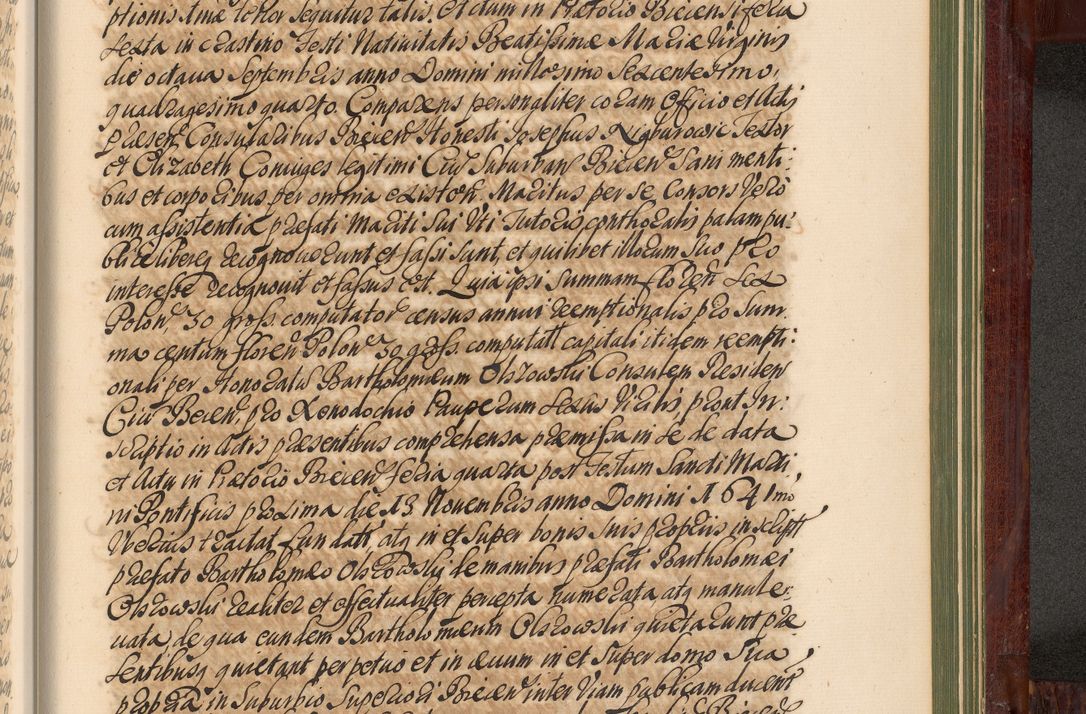 ptionis tenor sequitur talis. Actum in Prætorio Biecensi feria
Sexta in crastino Festi Nativitatis Beatissimæ Mariæ Virginis
die octava Septembris anno Domini millesimo Sexcentesimo,
quadragesimo quarto. Comparens personaliter coram Officio et Actis
præsen Consularibus Biecen Honesti Josephus Textor
et Elizabeth Coniuges legitimi Civ Suburban Biecen Sani menti:
bus et corporibus per omnia existen Maritus per se Consors vero
cum assistentia præfati Mariti Sui Uti Tutoris conthoralis palam pu:
blice libereq recognoverunt et fassi sunt, et quilibet illorum suo pro
interesse recognouit et fassus est. Quia ipsi Summam floren sex
Polon 30 gross. computator census annui reemptionalis pro Sum:
ma centum floren Polon 30 gross. computatt capitali itidem reempti:
onali per Honoratu Bartholomæum Olszowski Consulem Residen
Civ Biecen, pro Xenodochio Pauperum sexus Virilis, prout In:
scriptio in Actis præsentibus comprehensa præmissa in se de data
et Actu in Prætorio Biecen feria quarta post Festum Sancti Marti
ni Pontificis proxima die 13 Novembris anno Domini 1641mo
Uberius tractat fundatt atq in et super bonis suis propriis inscriptt
præfato Bartholomæo Olszowski de manibus præfati Bartholomæi
Olszowski realiter et effectualiter percepta numerata, atq manule:
uata, de qua eundem Bartholomæum Olszowski quietarunt præ
sentibusq quietant perpetuo et in ævum in et super domo sua
propria in Suburbio Superiori Biecen inter Viam publicam ducent